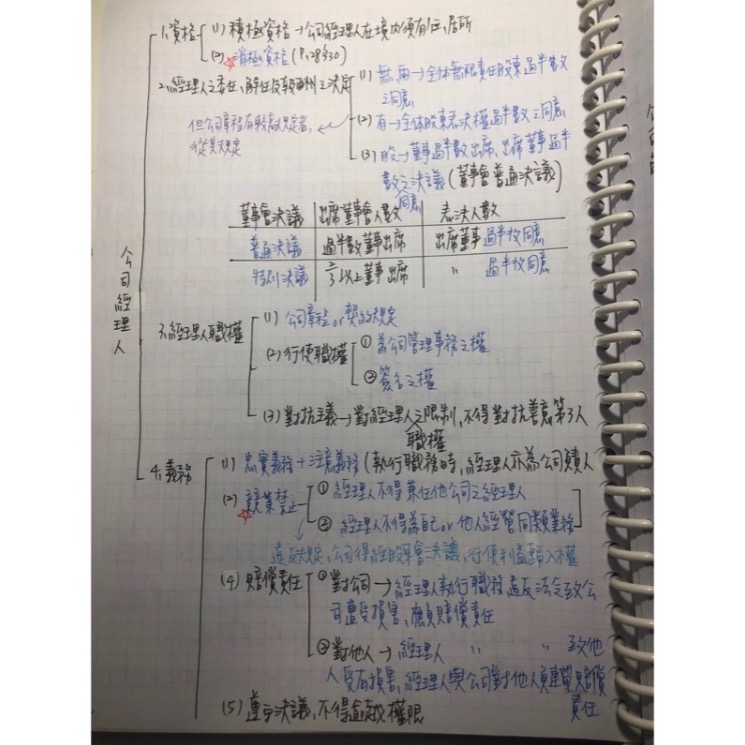 公司經理人
1.資格
(1) 積極資格→公司經理人在境內須有住、居所
(2) 消極資格(P.28§30)
2.經理人之委任、解任及報酬之決定
但公司章程有較高規定者,
從其規定
(1) 無、兩→全體無限責任股東過半數
之同意
(2) 有→全體股東表決權過半數之同意
(3) 股→董事過半數出席,出席董事過半
數之決議(董事會普通決議)
同意
董事會決議 出席董事會人數 表決人數
普通決議 過半數董事出席 出席董事過半數同意
特別決議 2/3以上董事出席 〃 過半數同意
3.經理人職權
(1) 公司章程or契約規定
(2) 行使職權
① 為公司管理事務之權
② 簽名之權
(3) 對抗主義→對經理人之限制,不得對抗善意第3人
職權
4.義務
(1) 忠實義務+注意義務(執行職務時,經理人亦為公司負責人
(2) 競業禁止
① 經理人不得兼任他公司之經理人
② 經理人不得為自己or他人經營同類業務
違反規定,公司得經股東會決議,行使利益歸入權
(4) 賠償責任
①對公司→經理人執行職務違反法令致公
司遭受損害,應負賠償責任
②對他人→經理人 〃 〃 致他
人受有損害,經理人與公司對他人負連帶賠償
責任
(5) 遵守決議,不得逾越權限